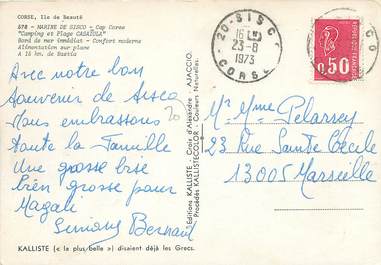 CORSE, Ile de Beauté
878 - MARINE DE SISCO - Cap Corse
"Camping et Plage CASAÏOLA"
Bord de mer immédiat - Confort moderne
Alimentation sur place
A 16 km. de Bastia
Avec notre bon
Souvenir de Sisco
Nous embrassons
toute la famille
Une grosse bise
bien grosse pour
Magali
Simone Bernard
KALLISTE (« la plus belle ») disaient déjà les Grecs.
20
Editions KALLISTE - Croix d'Alexandre - AJACCIO
Procédés KALLISTECOLOR - Couleurs Naturelles
20-SISCO
16H
23-8
1973
CORSE
REPUBLIQUE FRANCAISE
0,50
Mr Mme Pelarsey
23 Rue Sainte Cécile
13005 Marseille